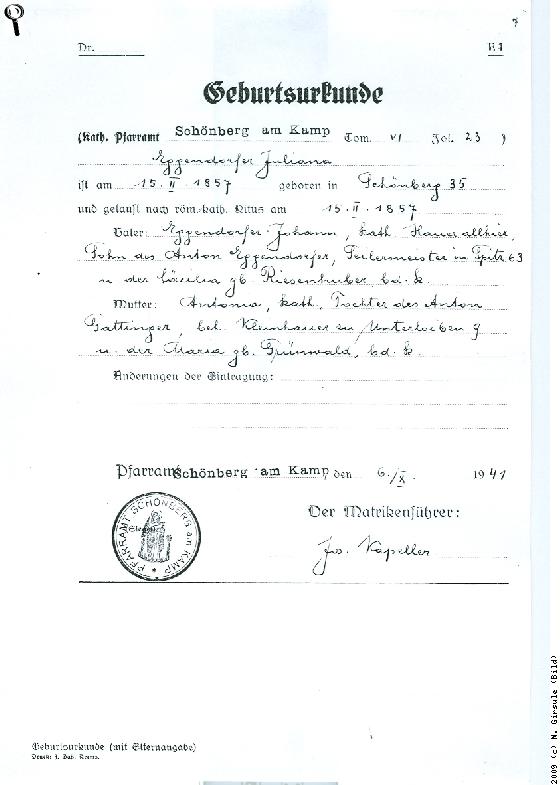 7
Dr.
E1
Geburtsurkunde
(Kath. Pfarramt Schönberg am Kamp Tom. VI Fol. 23 )
Eggendorfer Juliana
ist am 15. II. 1857 geboren in Schönberg 35
und getauft nach röm.-kath. Ritus am 15. II. 1857
Vater: Eggendorfer Johann, kath.
Sohn des Anton Eggendorfer, Seilermeister in Spitz 63
u der Cäcilia gb. Riesenhuber bd. k.
Mutter: Antonia, kath. Tochter des Anton
Gattinger, bel. Kleinhauer in Unterloiben 9
u. der Maria gb. Grünwald, bd. k.
Änderungen der Eintragung:
Pfarramt Schönberg am Kamp, den 6./X. 1941
PFARRAMT SCHÖNBERG am KAMP
Der Matrikenführer:
Jos. Kapeller
Geburtsurkunde (mit Elternangabe)
2009 (c) N. Girsule (Bild)